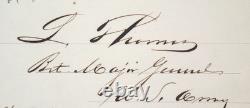 L Thomas
Bvt Major General
U.S. Army